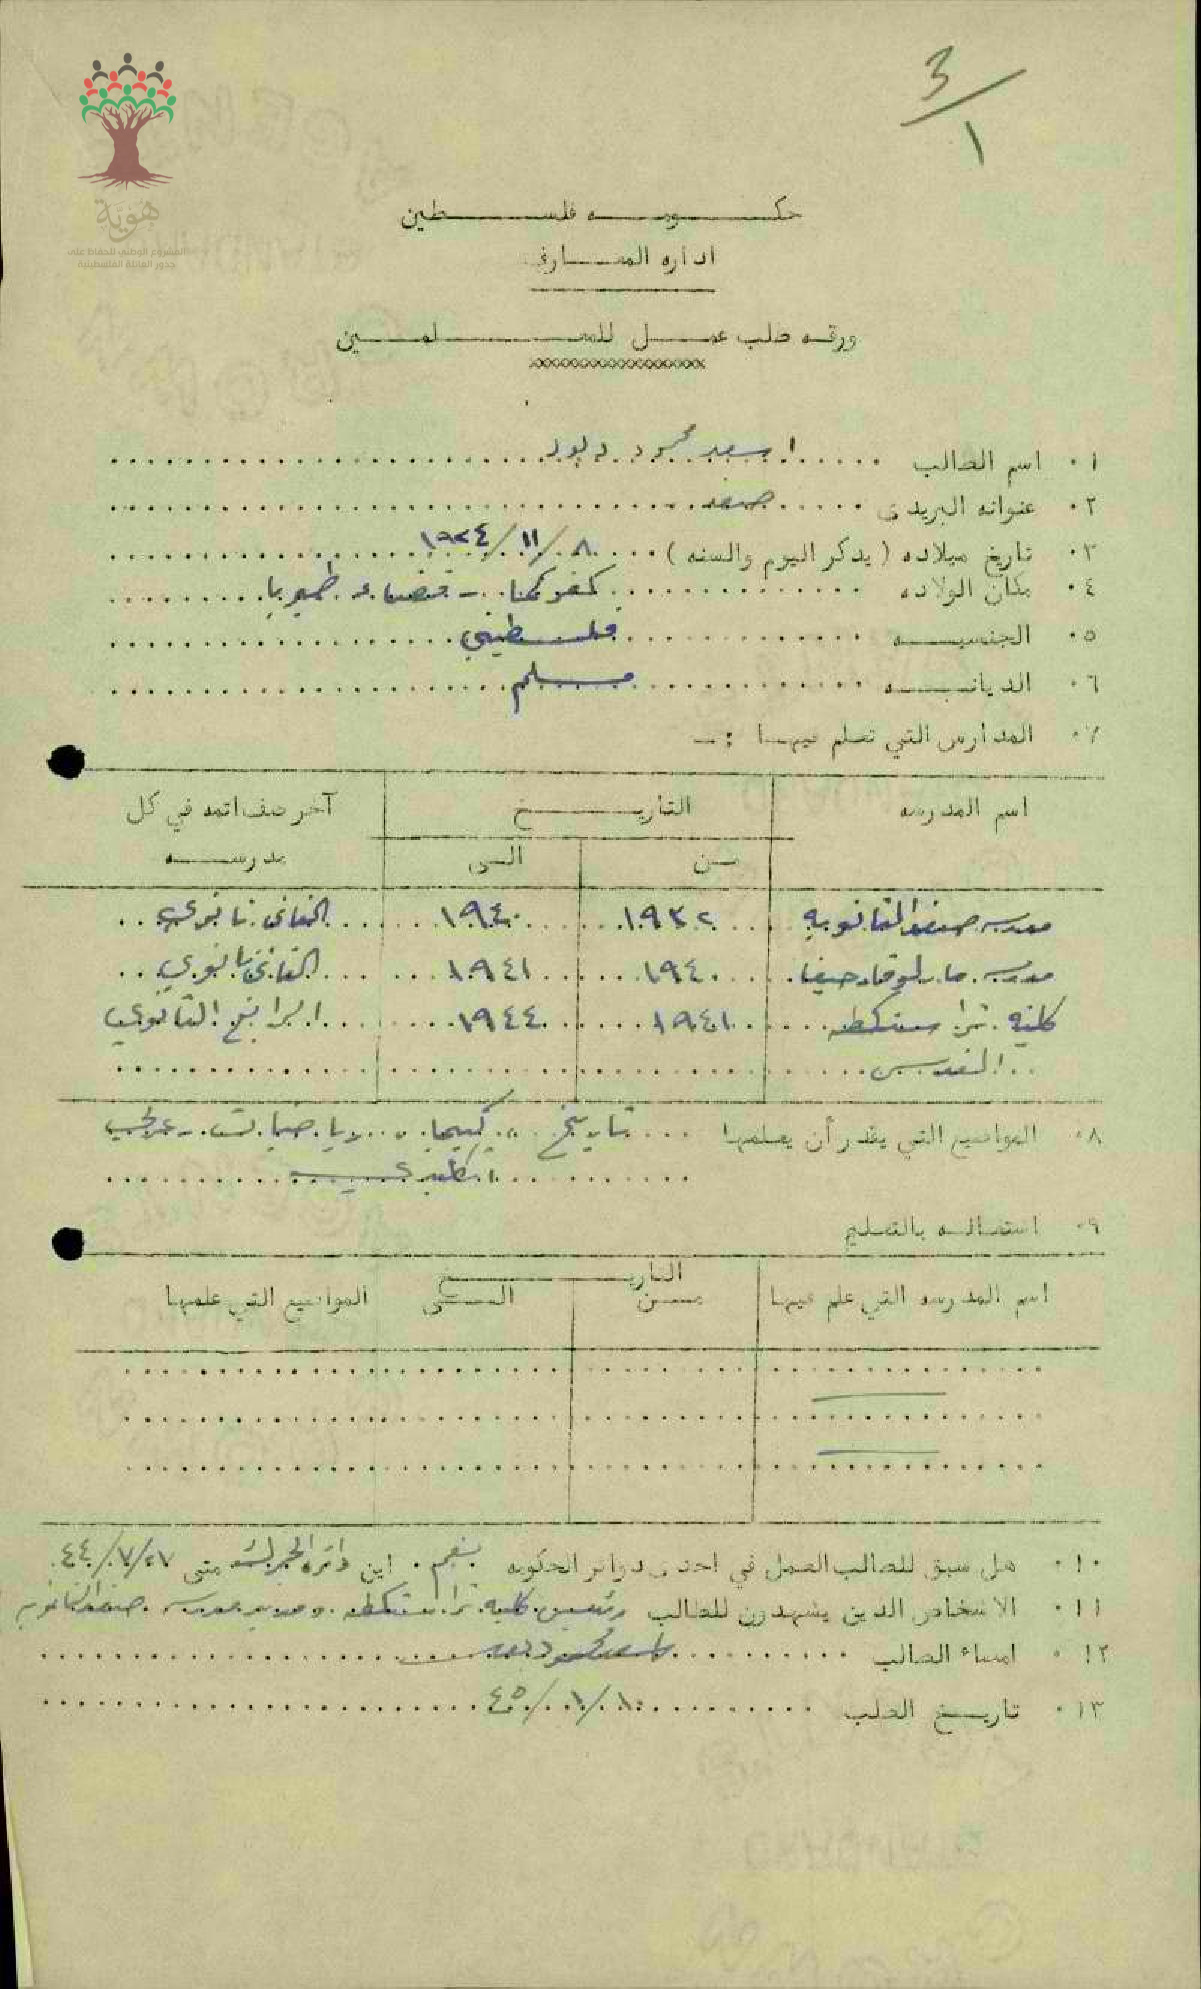 ٣/١
هوية
المشروع الوطني للحفاظ على
جذور العائلة الفلسطينية
حكومه فلسطين
اداره المعارف
ورقه طلب عمل للمعلمين
١. اسم الطالب اسعد محمود
٢. عنوانه البريدى صفد
٣. تاريخ ميلاده ( يذكر اليوم والسنه ) ٨/١١/١٩٢٤
٤. مكان الولاده كفركنا - قضاء طبريا
٥. الجنسيه فلسطيني
٦. الديانه مسلم
٧. المدارس التي تعلم فيها :-
اسم المدرسه التاريخ آخر صف اتمه في كل
من الى مدرسه
مدرسه صفد الثانويه ١٩٣٢ ١٩٤٠ الثاني ثانوي
مدرسه مار لوقا حيفا ١٩٤٠ ١٩٤١ الثاني ثانوي
كليه ترا سنكطه ١٩٤١ ١٩٤٤ الرابع الثانوي
القدس
٨. المواضيع التي يقدر أن يعلمها تاريخ ، كيميا ، رياضيات - عربي
انكليزي
٩. اشتغاله بالتعليم
التاريخ
اسم المدرسه التي علم فيها من الى المواضيع التي علمها
١٠. هل سبق للطالب العمل في احدى دوائر الحكومه نعم . اين دائرة الجمرك متى ٢٧/٧/٤٤
١١. الاشخاص الذين يشهدون للطالب رئيس كليه ترا سنكطه ومدير مدرسه صفد الثانويه
١٢. امضاء الطالب
١٣. تاريخ الطلب ١٠/١/٤٥